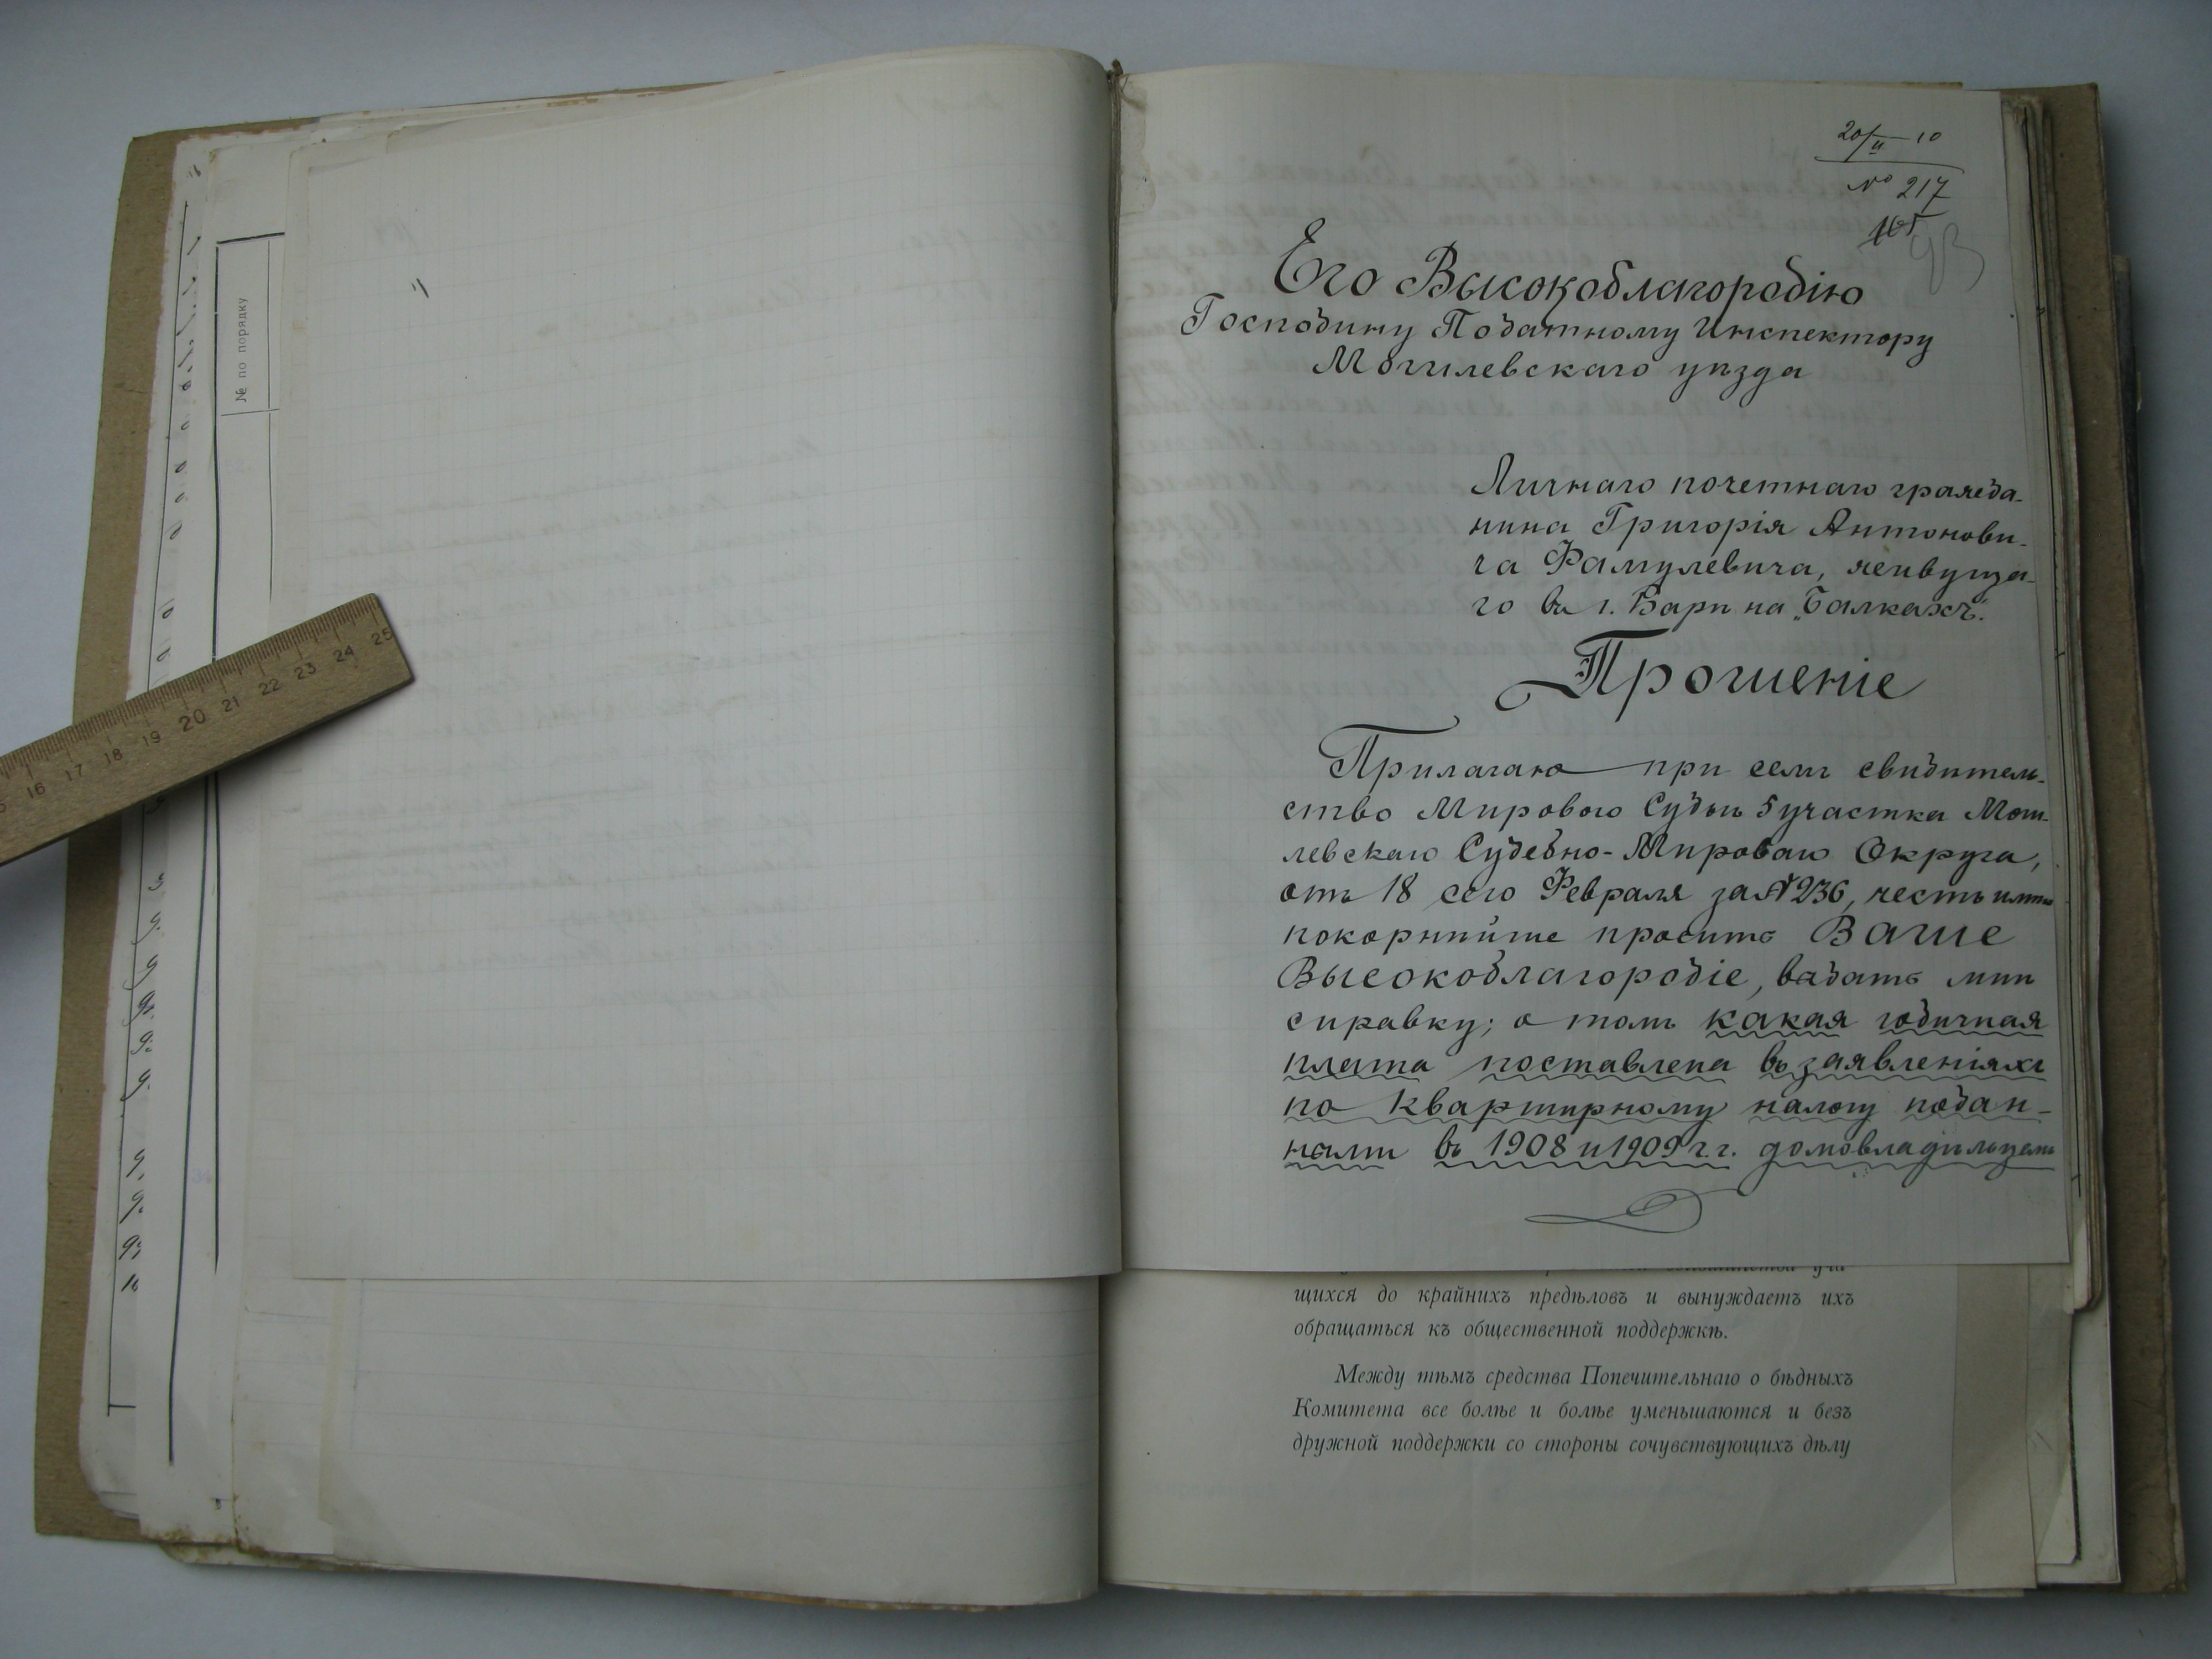 № по порядку
16 17 18 19 20 21 22 23 24 25
20/II 10
№ 217
105
93
Его Высокоблагородію
Господину Податному Инспектору
Могилевскаго уѣзда
Личнаго почетнаго гражда-
нина Григорія Антонови-
ча Фамулевича, живуща-
го въ г. Барѣ на „Балкахъ".
Прошеніе
Прилагая при семъ свидѣтель-
ство Мирового Судьи 5 участка Моги-
левскаго Судебно-Мирового Округа,
отъ 18 сего Февраля за № 236, честь имѣю
покорнѣйше просить Ваше
Высокоблагородіе, выдать мнѣ
справку; о томъ какая годичная
плата поставлена въ заявленіяхъ
по квартирному налогу подан-
ными въ 1908 и 1909 г.г. домовладѣльцемъ
щихся до крайнихъ предѣловъ и вынуждаетъ ихъ
обращаться къ общественной поддержкѣ.
Между тѣмъ средства Попечительнаго о бѣдныхъ
Комитета все болѣе и болѣе уменьшаются и безъ
дружной поддержки со стороны сочувствующихъ дѣлу